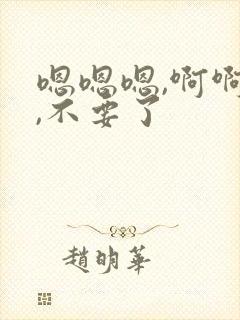 嗯嗯嗯,啊啊
,不要了
趙明華